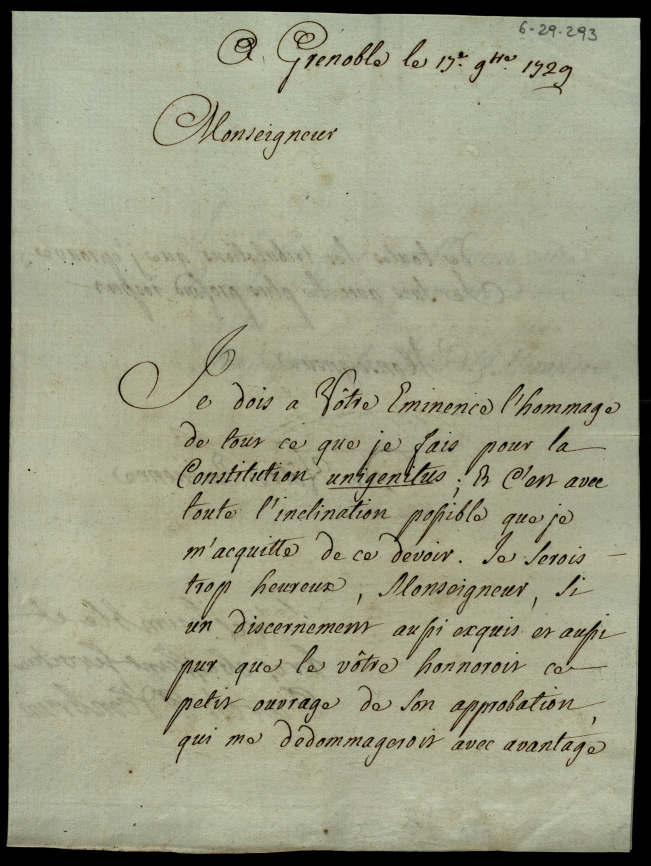 6-29-293
A Grenoble le 17e 9bre 1729
Monseigneur
Je dois a Vôtre Eminence l'hommage
de tout ce que je fais pour la
Constitution unigenitus; Et C'est avec
toute l'inclination possible que je
m'acquitte de ce devoir. Je serois
trop heureux, Monseigneur, si
un discernement aussi exquis et aussi
pur que le vôtre honnoroit ce
petit ouvrage de son approbation,
qui me dedommageroit avec avantage